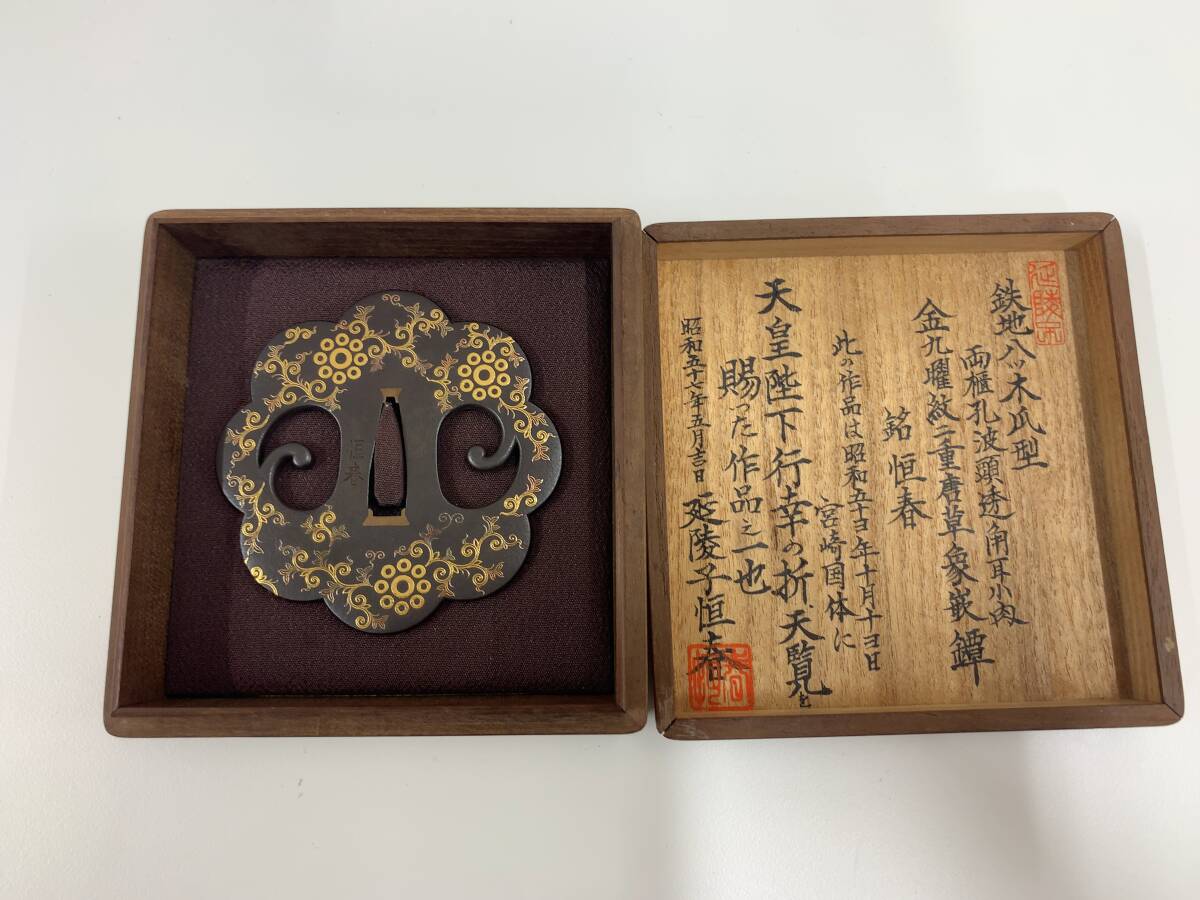 鉄地八ッ木瓜型
両櫃孔波頭透角耳小肉
金九曜紋二重唐草象嵌鐔
銘恒春
此の作品は昭和五十四年十月十四日
宮崎国体に
天皇陛下行幸の折天覧を
賜った作品之一也
昭和五十七年五月吉日
延陵子恒春
延陵子
恒春